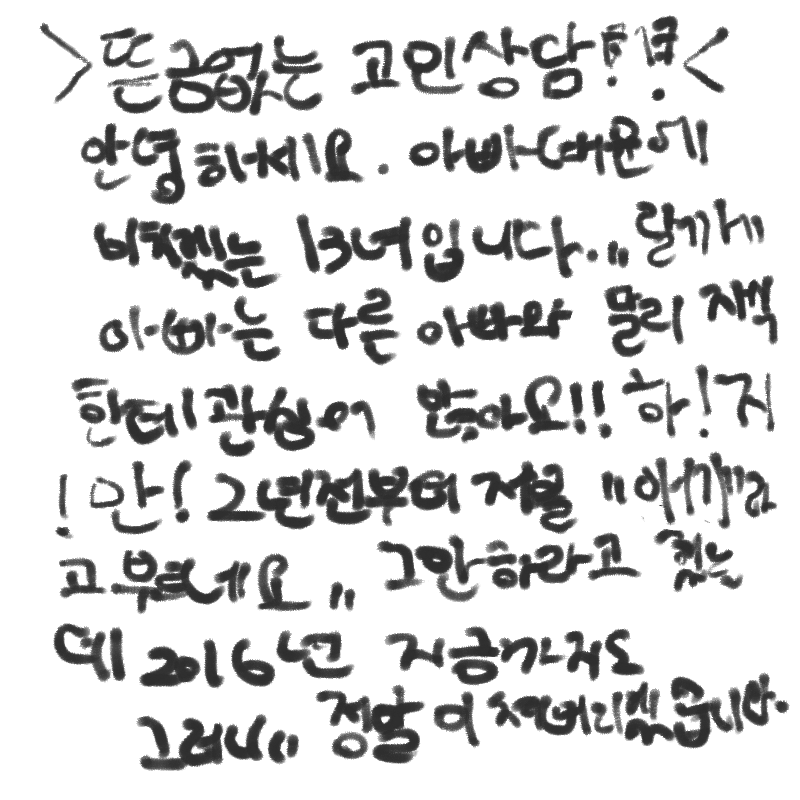 >뜬금없는 고민상담!!<
안녕하세요. 아빠때문에
미치겠는 13녀입니다..,, 랄까"
아빠는 다른 아빠와 달리 자식
한테 관심이 많아요!! 하!지
!만! 2년전부터 저를 "아가"라
고 부르네요,, 그만하라고 했는
데 2016년 지금까지도
그러니,, 정말 미쳐버리겠습니다.